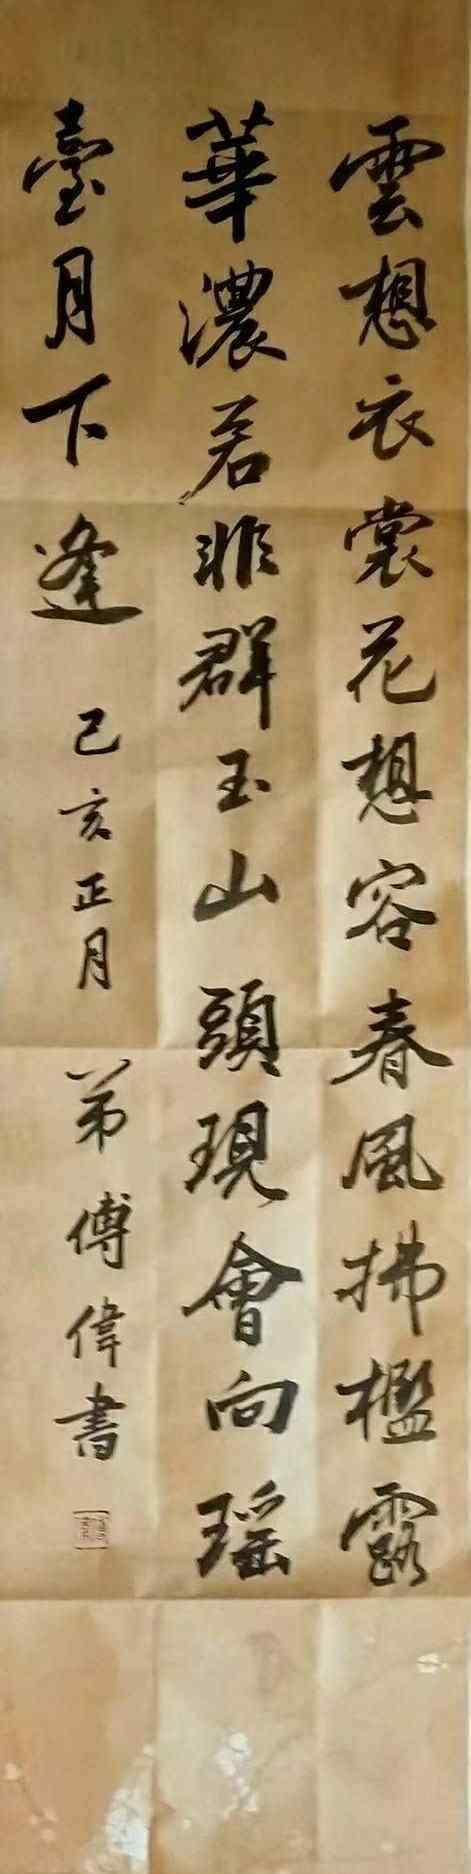 雲想衣裳花想容春風拂檻露
華濃若非群玉山頭現會向瑶
臺月下逢
己亥正月 弟傅偉書